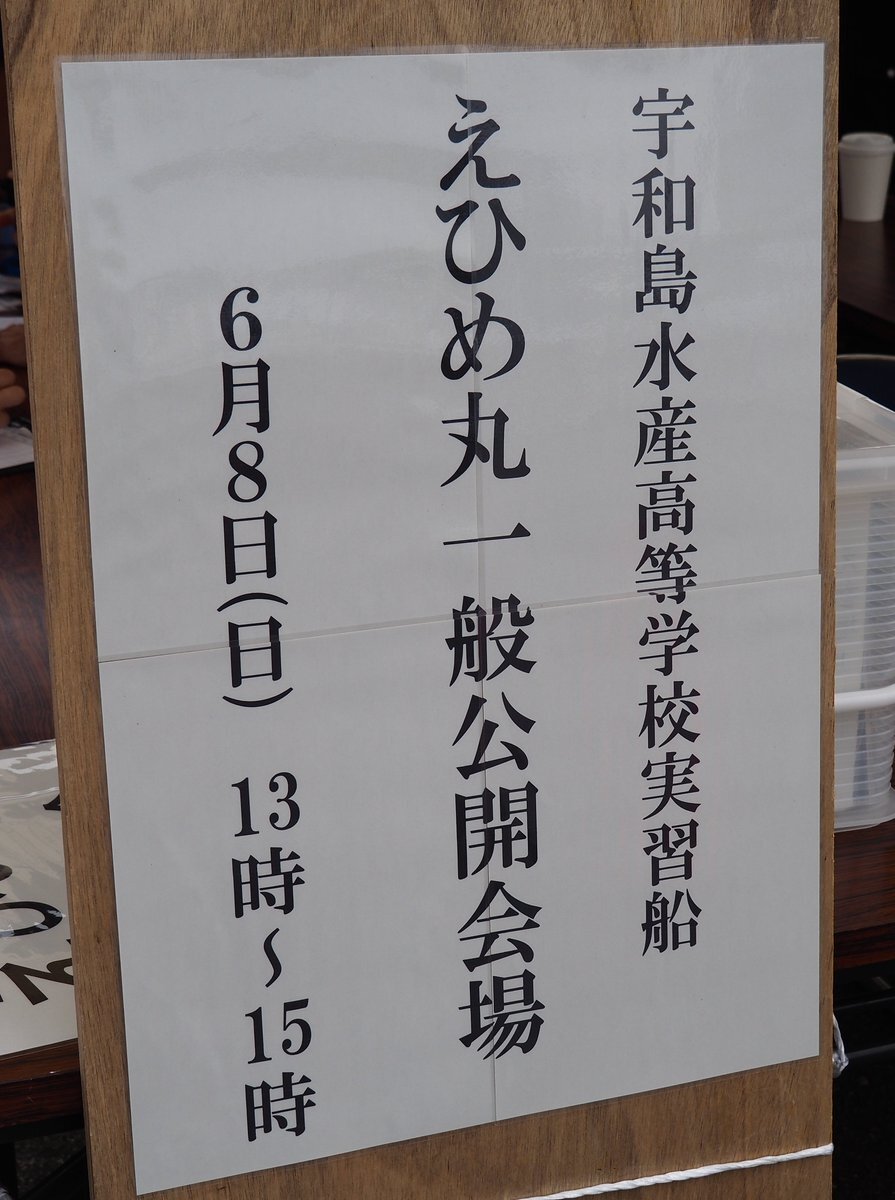 宇和島水産高等学校実習船
えひめ丸一般公開会場
6月8日(日) 13時～15時